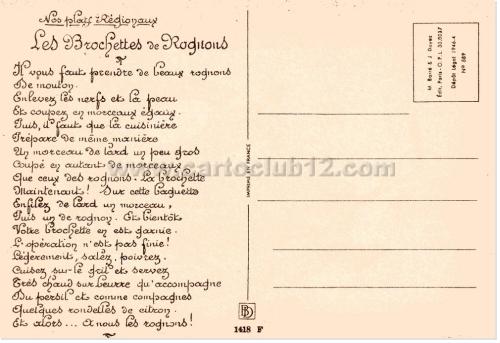 Nos plats Régionaux
Les Brochettes de Rognons
Il vous faut prendre de beaux rognons
De mouton.
Enlevez les nerfs et la peau
Et coupez en morceaux égaux.
Puis, il faut que la cuisinière
Prépare de même manière
Un morceau de lard un peu gros
Coupé en autant de morceaux
Que ceux des rognons. La brochette
Maintenant! Sur cette baguette
Enfilez de lard un morceau,
Puis un de rognon. Et bientôt
Votre brochette en est garnie.
L'opération n'est pas finie!
Légèrement, salez, poivrez.
Cuisez sur le gril et servez
Très chaud sur beurre qu'accompagne
Du persil et comme compagnes
Quelques rondelles de citron.
Et alors... A nous les rognons!
www.cartoclub12.com
IMPRIMÉ EN FRANCE
BD
1418 F
M. Barré & J. Dayez
Édit. Paris - O.P.L.
Dépôt légal 1946-4
N° 889